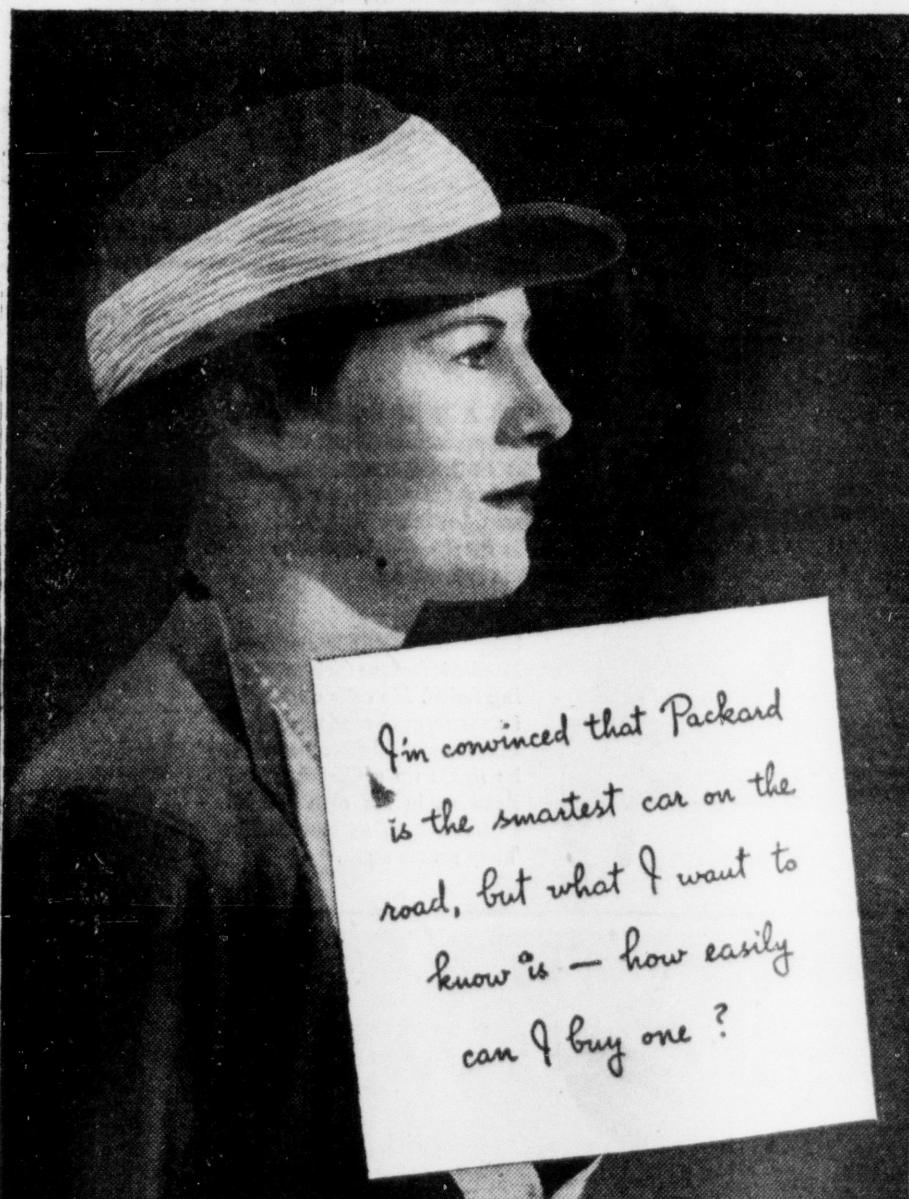 I'm convinced that Packard
is the smartest car on the
road, but what I want to
know is — how easily
can I buy one?